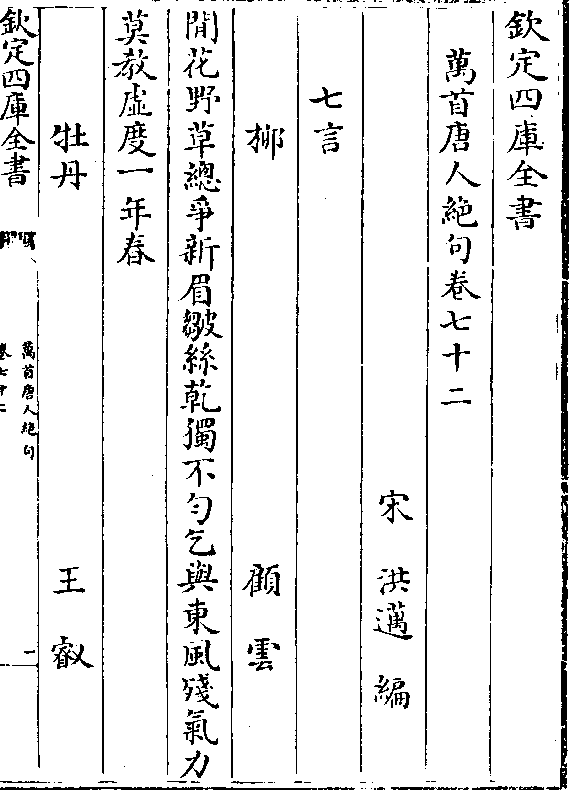 欽定四庫全書
萬首唐人絶句卷七十二
宋 洪邁 編
七言
栁 顧雲
閒花野草總爭新眉皺絲乾獨不勻乞與東風殘氣力
莫教虛度一年春
牡丹 王叡
欽定四庫全書
萬首唐人絶句
卷七十二
一